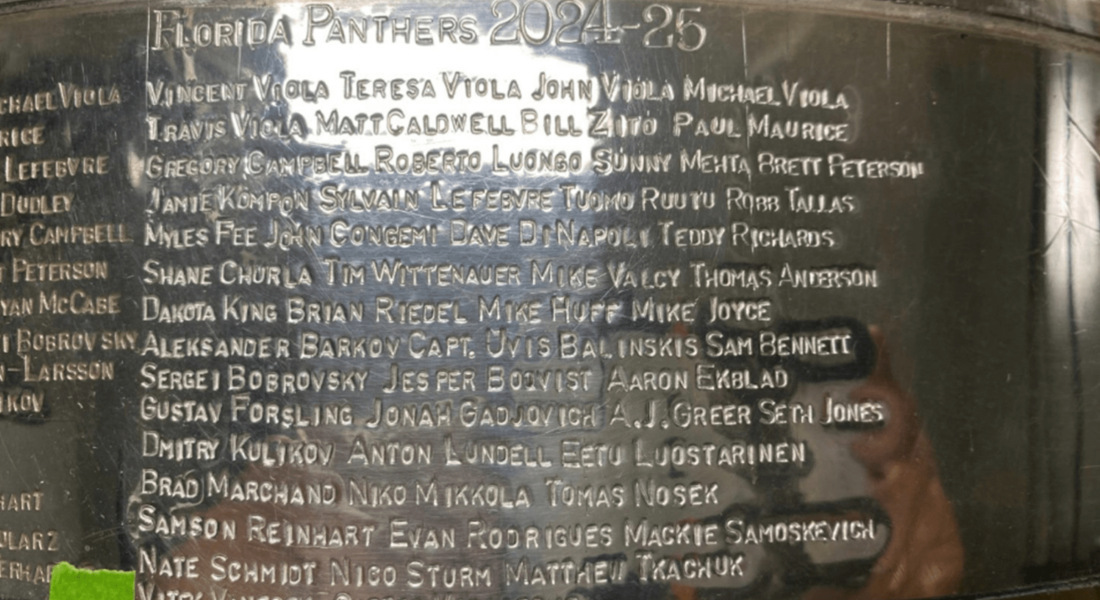 FLORIDA PANTHERS 2024-25
VINCENT VIOLA TERESA VIOLA JOHN VIOLA MICHAEL VIOLA
TRAVIS VIOLA MATT CALDWELL BILL ZITO PAUL MAURICE
GREGORY CAMPBELL ROBERTO LUONGO SUNNY MEHTA BRETT PETERSON
JAMIE KOMPON SYLVAIN LEFEBVRE TUOMO RUUTU ROBB TALLAS
MYLES FEE JOHN CONGEMI DAVE DINAPOLI TEDDY RICHARDS
SHANE CHURLA TIM WITTENAUER MIKE VALCY THOMAS ANDERSON
DAKOTA KING BRIAN RIEDEL MIKE HUFF MIKE JOYCE
ALEKSANDER BARKOV CAPT. UVIS BALINSKIS SAM BENNETT
SERGEI BOBROVSKY JESPER BOQVIST AARON EKBLAD
GUSTAV FORSLING JONAH GADJOVICH A.J. GREER SETH JONES
DMITRY KULIKOV ANTON LUNDELL EETU LUOSTARINEN
BRAD MARCHAND NIKO MIKKOLA TOMAS NOSEK
SAMSON REINHART EVAN RODRIGUES MACKIE SAMOSKEVICH
NATE SCHMIDT NICO STURM MATTHEW TKACHUK
CHAEL VIOLA
RICE
LEFEBVRE
DUDLEY
RY CAMPBELL
PETERSON
YAN MCCABE
I BOBROVSKY
N-LARSSON
IKOV
HART
ULARZ
ERHAE